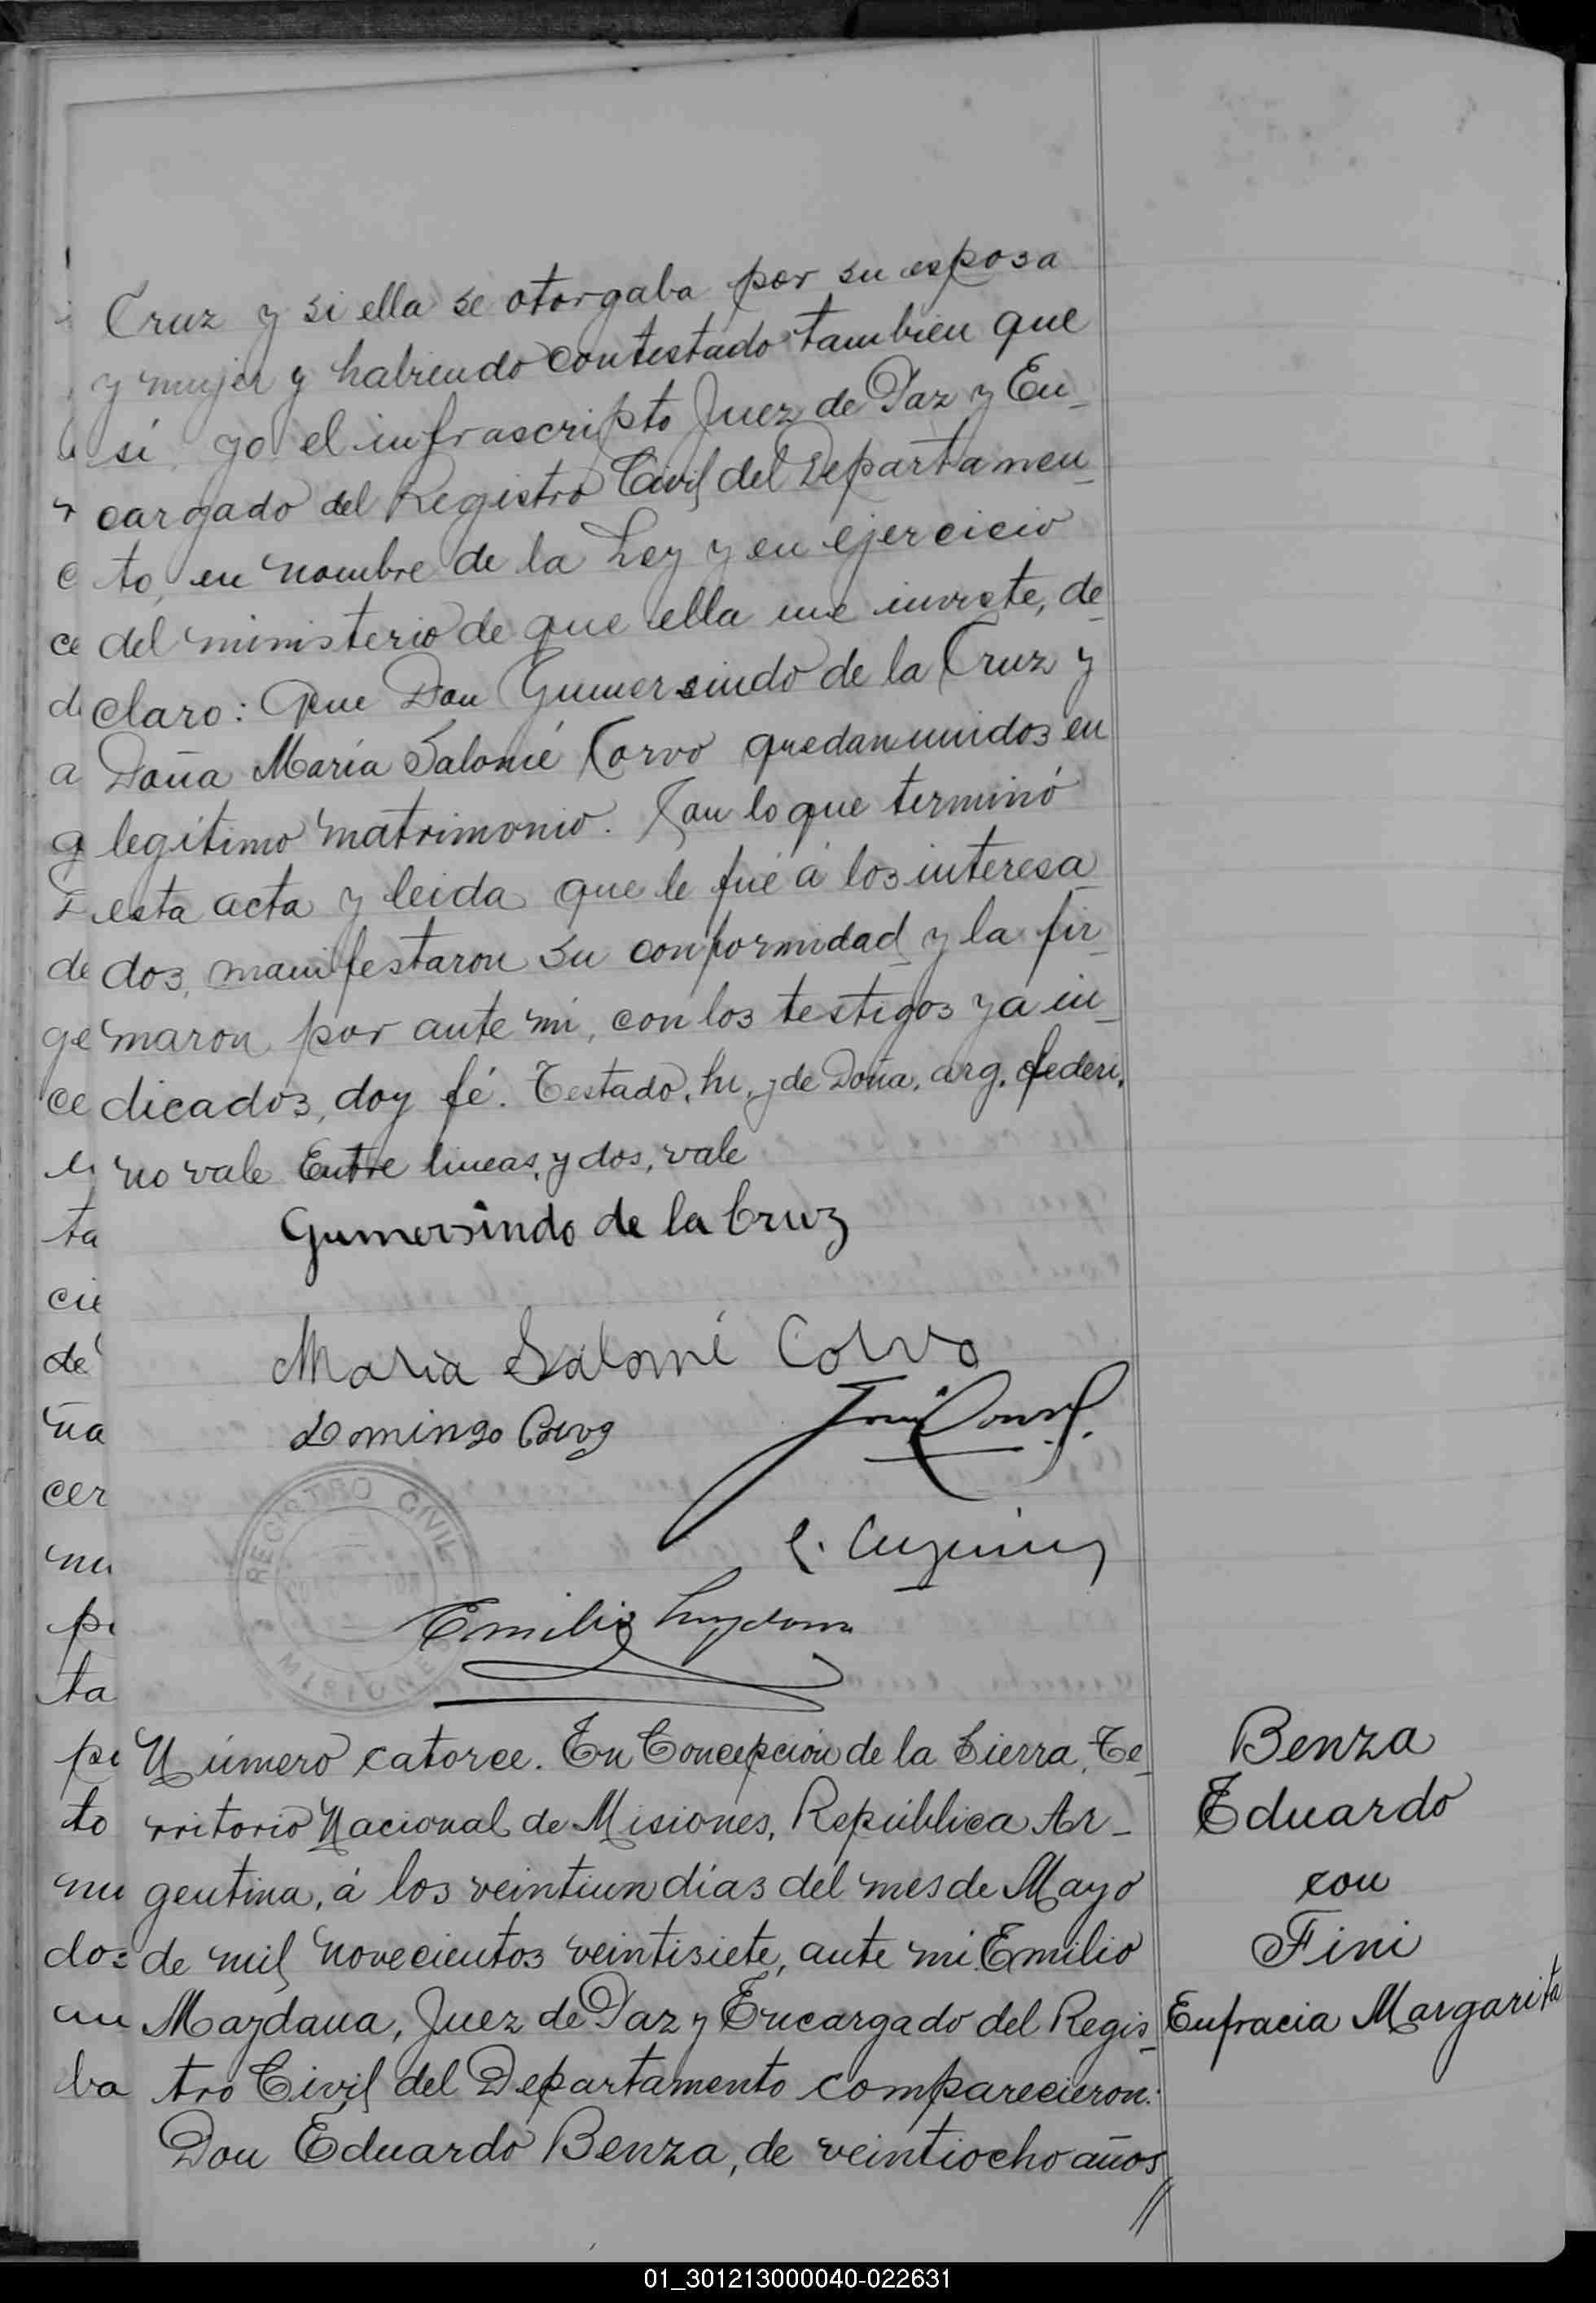 Cruz y si ella se otorgaba por su esposa
y mujer y habiendo contestado tambien que
sí yo el infrascripto Juez de Paz y En-
cargado del Registro Civil del Departamen-
to, en nombre de la Ley y en ejercicio
del ministerio de que ella me inviste, de-
claro: Que Don Gumersindo de la Cruz y
Doña María Salomé Corvo quedan unidos en
legítimo matrimonio. Con lo que terminó
esta acta y leida que le fué á los interesa-
dos, manifestaron su conformidad y la fir-
maron por ante mi, con los testigos ya in-
dicados, doy fé. Testado, hi, y de Doña, arg.
no vale Entre lineas, y dos, vale
Gumersindo de la Cruz
Maria Salomé Corvo
Domingo
Emilio
REGISTRO CIVIL
MISIONES
Número catorce. En Concepción de la Sierra, Te-
rritorio Nacional de Misiones, República Ar-
gentina, á los veintiun días del mes de Mayo
de mil novecientos veintisiete, ante mi Emilio
Mazdana, Juez de Paz y Encargado del Regis-
tro Civil del Departamento comparecieron:
Don Eduardo Benza, de veintiocho años
//
Benza
Eduardo
con
Fini
Eufracia Margarita
01_301213000040-022631